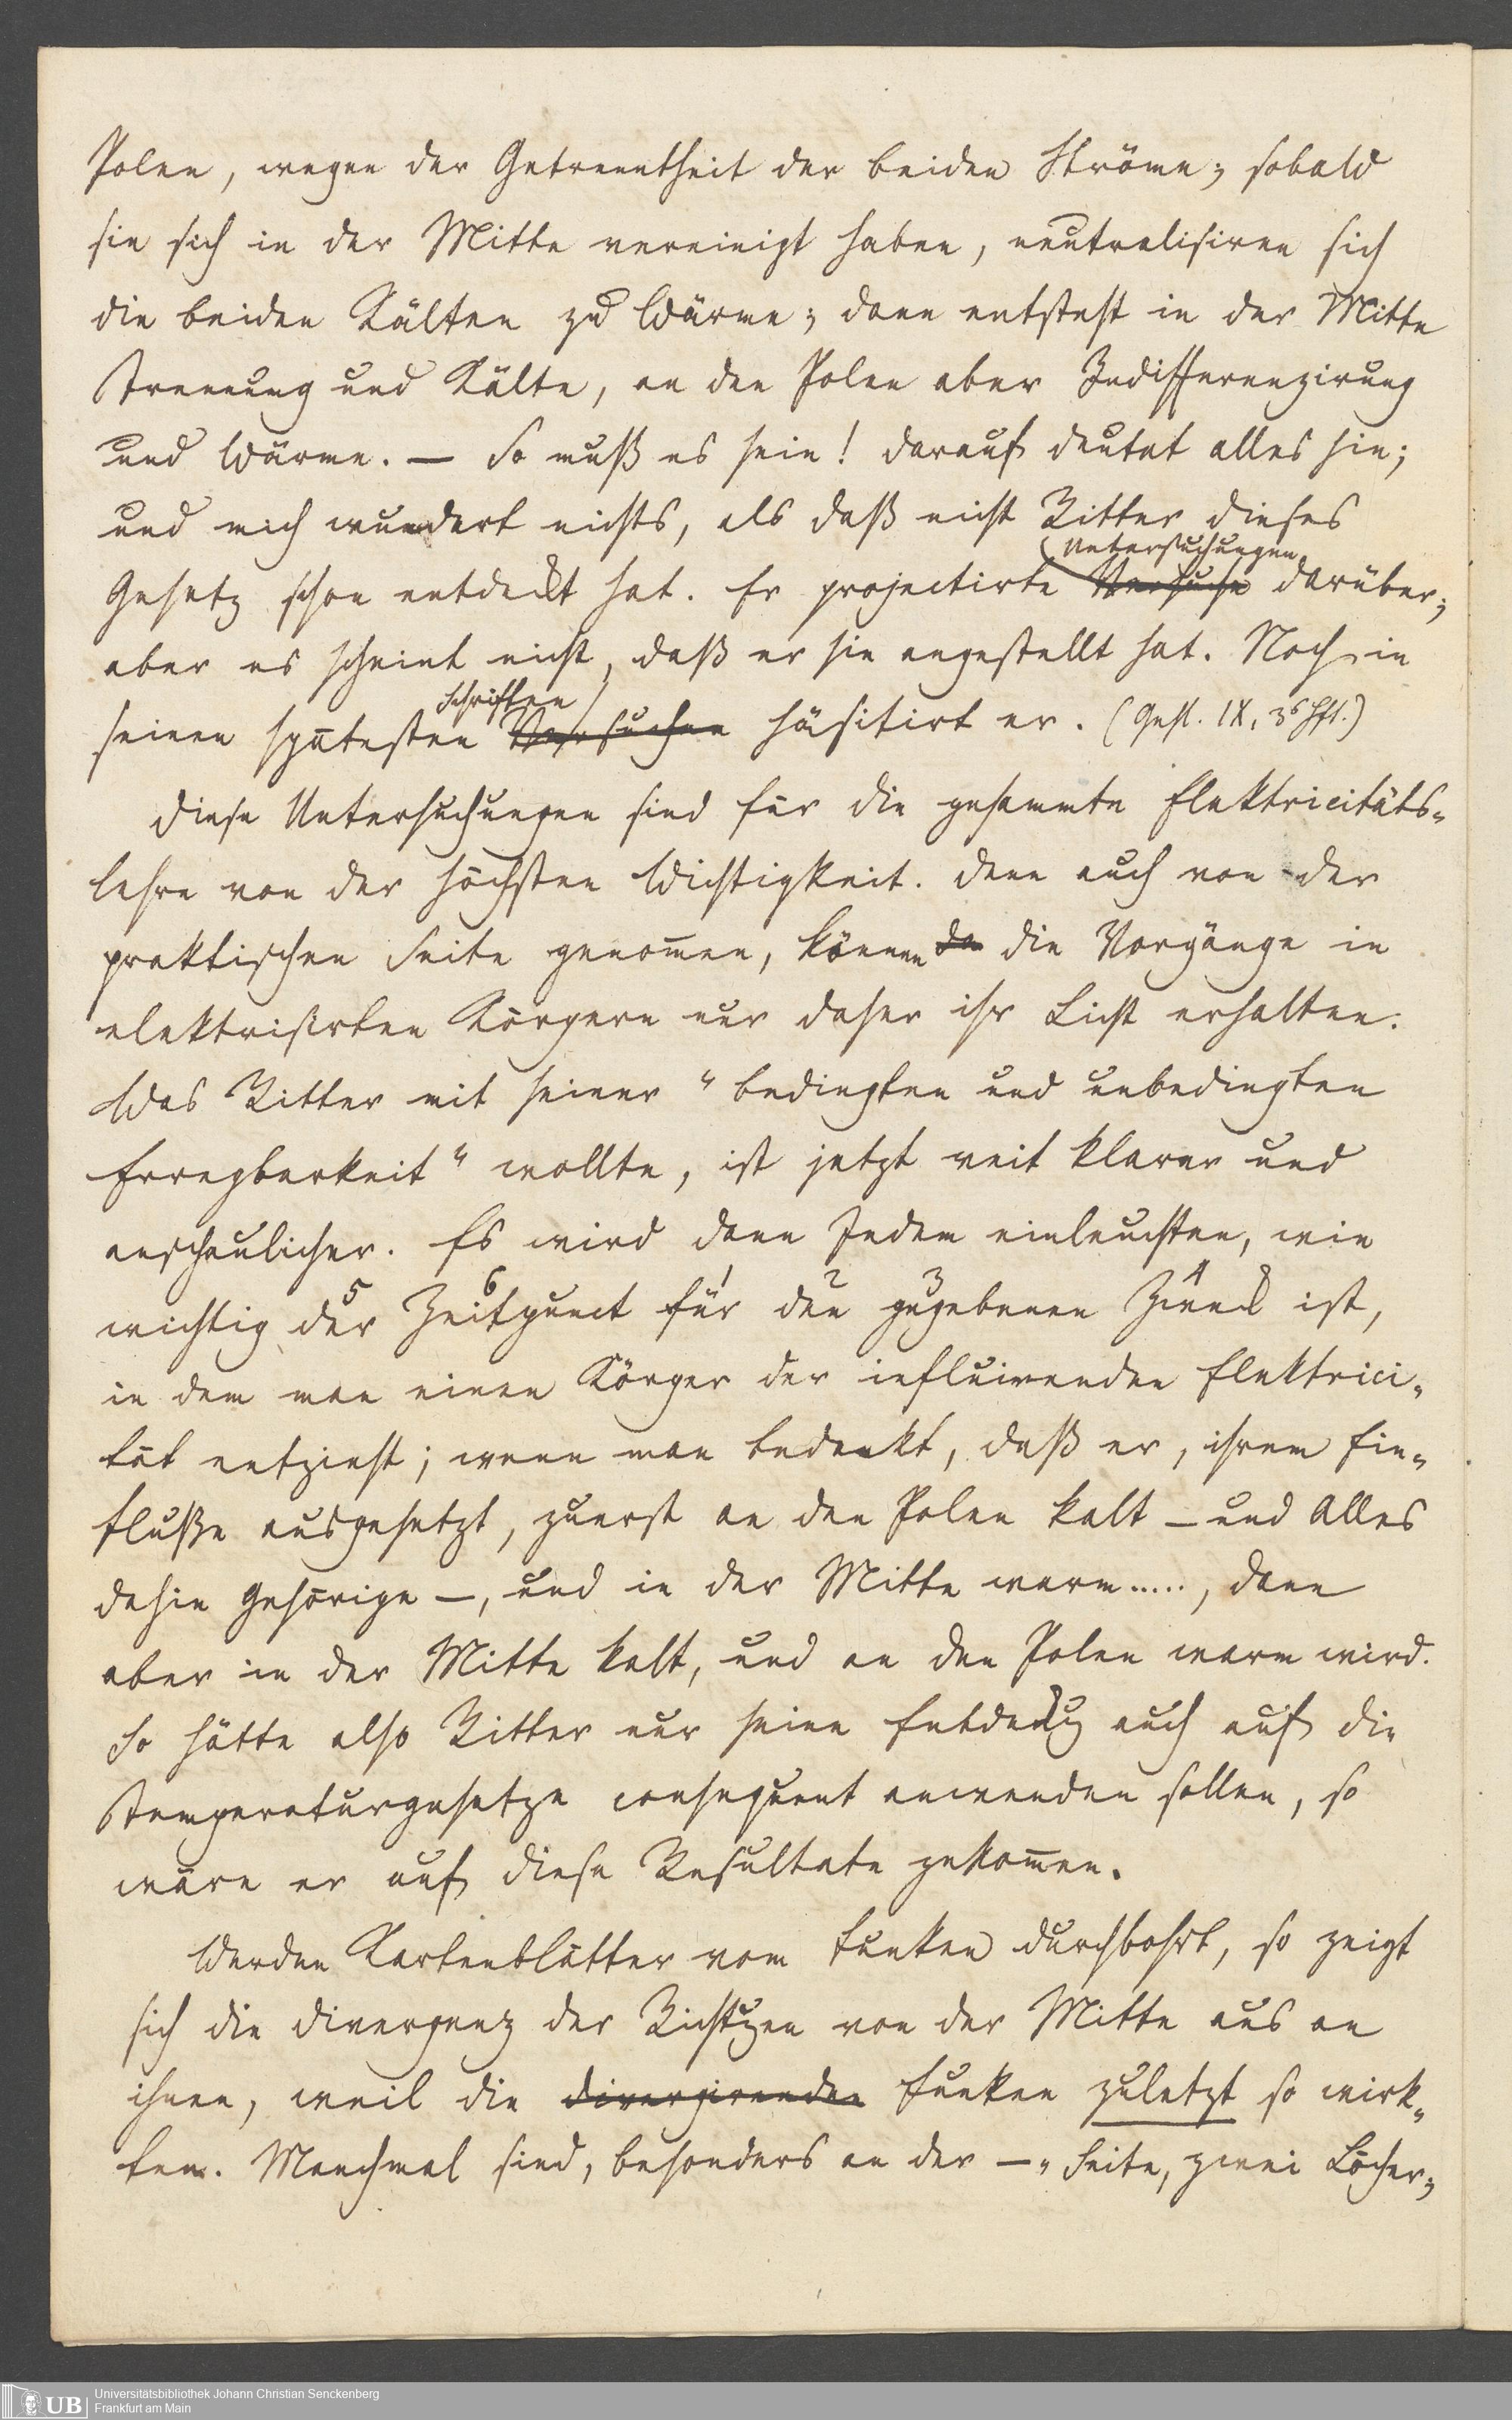 Polen, wegen der Getrenntheit der beiden Ströme; sobald
sie sich in der Mitte vereinigt haben, neutralisiren sich
die beiden Kälten zu Wärme; dann entsteht in der Mitte
Trennung und Kälte, an den Polen aber Indifferenzirung
und Wärme. — So muß es sein! darauf deutet alles hin;
und mich wundert nichts, als daß nicht Ritter dieses
Untersuchungen
Gesetz schon entdeckt hat. Er projectirte Versuche darüber;
aber es scheint nicht, daß er sie angestellt hat. Noch in
Schriften
seinen spätesten Versuchen häsitirt er. (Gehl. IX, 3s Hft.)
Diese Untersuchungen sind für die gesammte Elektricitäts-
lehre von der höchsten Wichtigkeit. Denn auch von der
praktischen Seite genom̄en, können da die Vorgänge in
elektrisirten Körpern nur daher ihr Licht erhalten.
Was Ritter mit seiner "bedingten und unbedingten
Erregbarkeit" wollte, ist jetzt weit klarer und
anschaulicher. Es wird dann Jedem einleuchten, wie
5 6 1 2 3 4
wichtig der Zeitpunct für den gegebenen Zweck ist,
in dem man einen Körper der influirenden Elektrici-
tät entzieht; wenn man bedenkt, daß er, ihrem Ein-
fluße ausgesetzt, zuerst an den Polen kalt — und Alles
dahin Gehörige —, und in der Mitte warm....., dann
aber in der Mitte kalt, und an den Polen warm wird.
So hätte also Ritter nur seine Entdeckg auch auf die
Temperaturgesetze consequent anwenden sollen, so
wäre er auf diese Resultate gekom̄en.
Werden Kartenblätter vom Funken durchbohrt, so zeigt
sich die Divergenz der Richtgen von der Mitte aus an
ihnen, weil die divergirenden Funken zuletzt so wirk-
ten. Manchmal sind, besonders an der —-Seite, zwei Löcher;
Universitätsbibliothek Johann Christian Senckenberg
Frankfurt am Main
UB